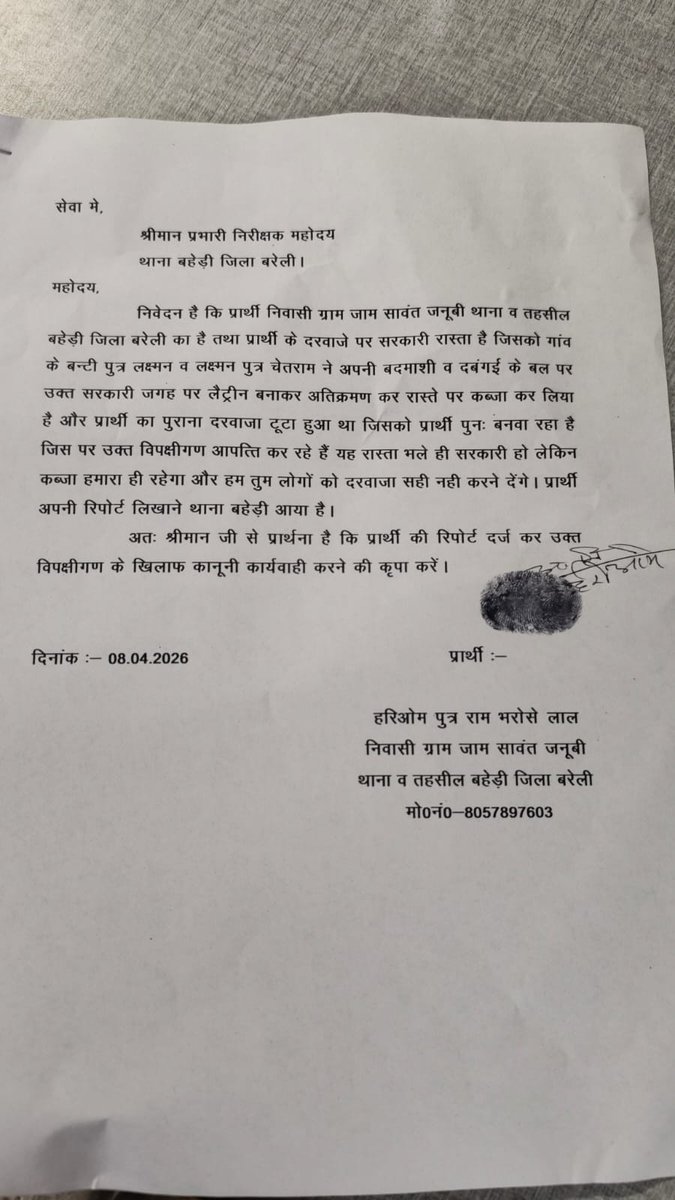 सेवा मे,
श्रीमान प्रभारी निरीक्षक महोदय
थाना बहेड़ी जिला बरेली।
महोदय,
निवेदन है कि प्रार्थी निवासी ग्राम जाम सावंत जनूबी थाना व तहसील
बहेड़ी जिला बरेली का है तथा प्रार्थी के दरवाजे पर सरकारी रास्ता है जिसको गांव
के बन्टी पुत्र लक्ष्मन व लक्ष्मन पुत्र चेतराम ने अपनी बदमाशी व दबंगई के बल पर
उक्त सरकारी जगह पर लैट्रीन बनाकर अतिक्रमण कर रास्ते पर कब्जा कर लिया
है और प्रार्थी का पुराना दरवाजा टूटा हुआ था जिसको प्रार्थी पुनः बनवा रहा है
जिस पर उक्त विपक्षीगण आपत्ति कर रहे हैं यह रास्ता भले ही सरकारी हो लेकिन
कब्जा हमारा ही रहेगा और हम तुम लोगों को दरवाजा सही नही करने देंगे। प्रार्थी
अपनी रिपोर्ट लिखाने थाना बहेड़ी आया है।
अतः श्रीमान जी से प्रार्थना है कि प्रार्थी की रिपोर्ट दर्ज कर उक्त
विपक्षीगण के खिलाफ कानूनी कार्यवाही करने की कृपा करें।
हरीओम
दिनांक :– 08.04.2026
प्रार्थी :–
हरिओम पुत्र राम भरोसे लाल
निवासी ग्राम जाम सावंत जनूबी
थाना व तहसील बहेड़ी जिला बरेली
मो0नं0–8057897603